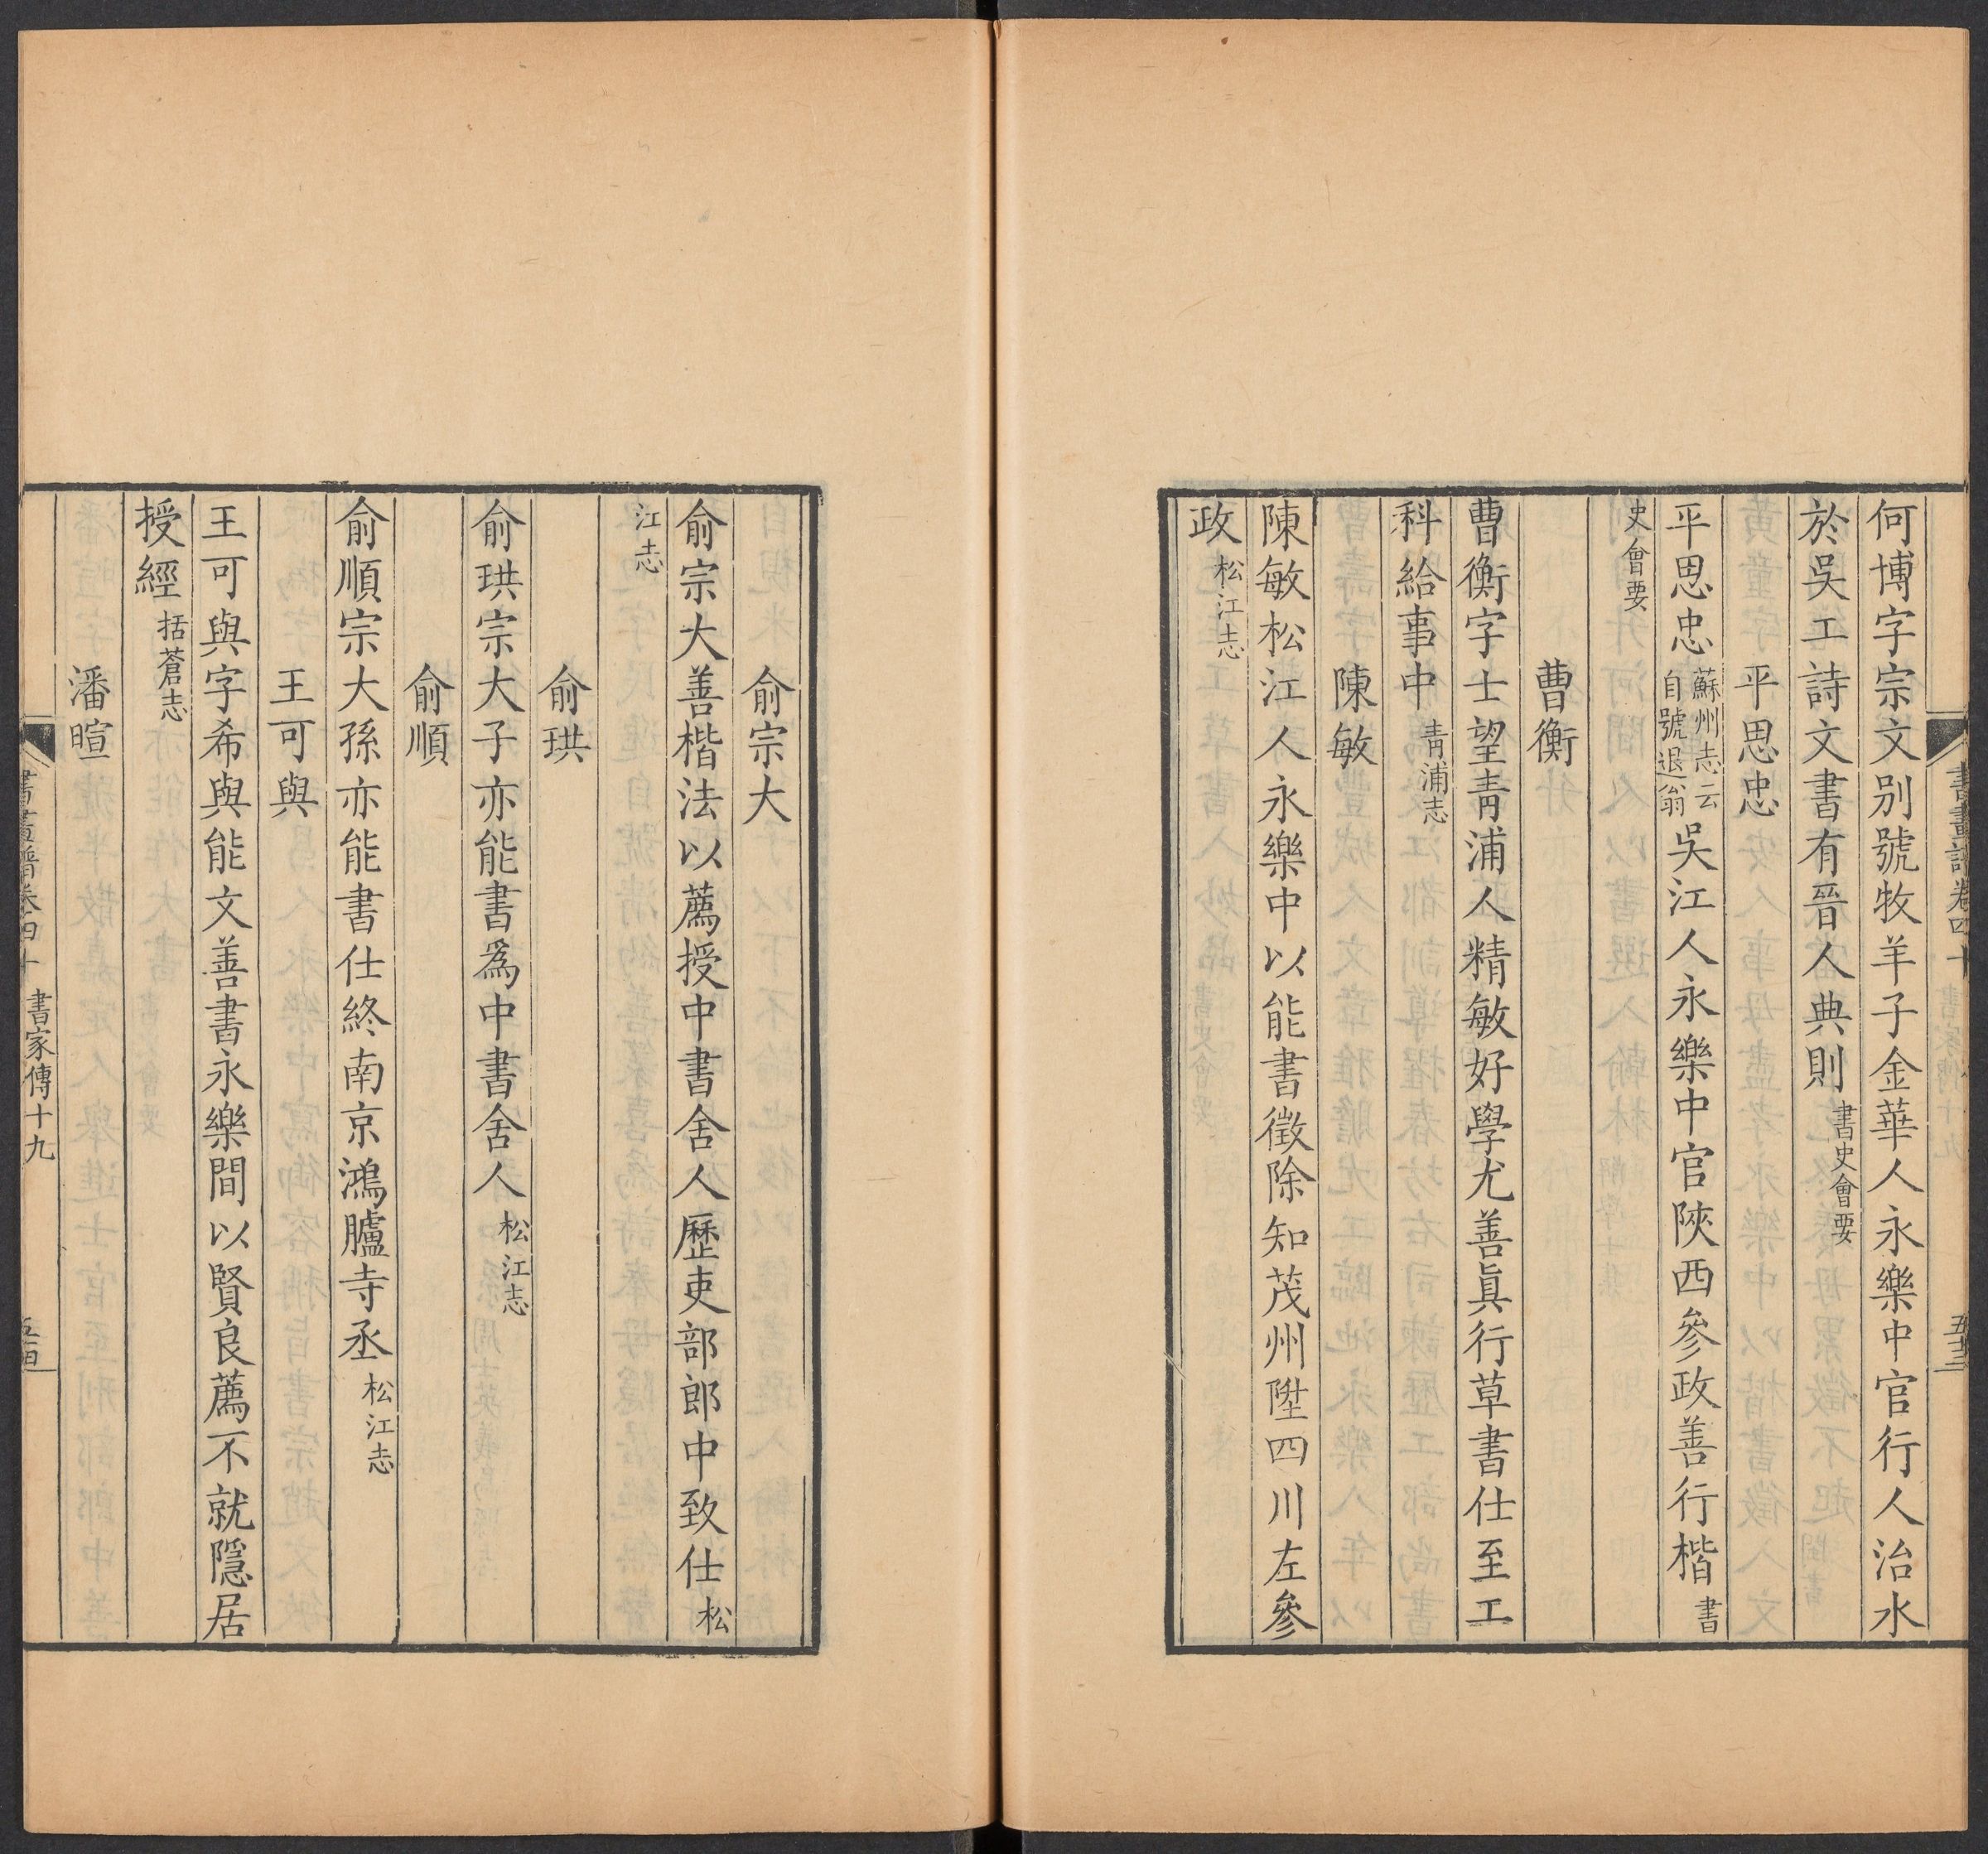 何博字宗文别號牧羊子金華人永樂中官行人治水
於吳工詩文書有晉人典則書史會要
平思忠
平思忠蘇州志云自號退翁吳江人永樂中官陝西參政善行楷書
史會要
曹衡
曹衡字士望青浦人精敏好學尤善眞行草書仕至工
科給事中青浦志
陳敏
陳敏松江人永樂中以能書徵除知茂州陞四川左參
政松江志
俞宗大
俞宗大善楷法以薦授中書舍人歷吏部郎中致仕松
江志
俞珙
俞珙宗大子亦能書爲中書舍人松江志
俞順
俞順宗大孫亦能書仕終南京鴻臚寺丞松江志
王可與
王可與字希與能文善書永樂間以賢良薦不就隱居
授經括蒼志
潘暄
書畫譜卷四十 書家傳十九